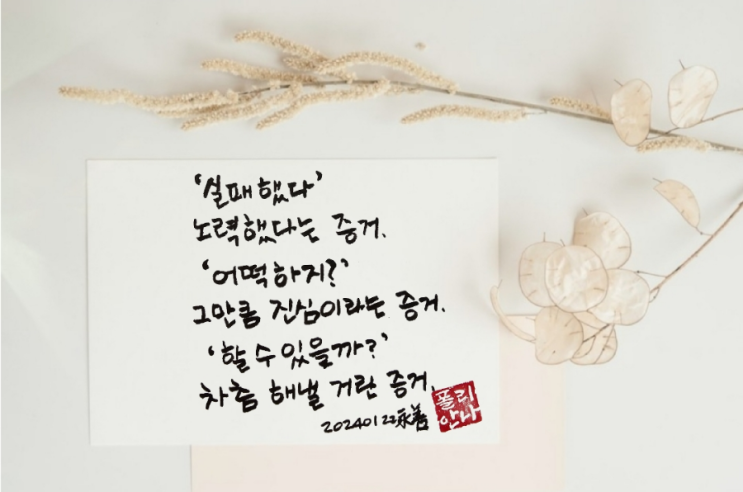 '실패했다'
노력했다는 증거.
'어떡하지?'
그만큼 진심이라는 증거.
'할 수 있을까?'
차츰 해낼 거란 증거.
20240122 永善
폴리
안나